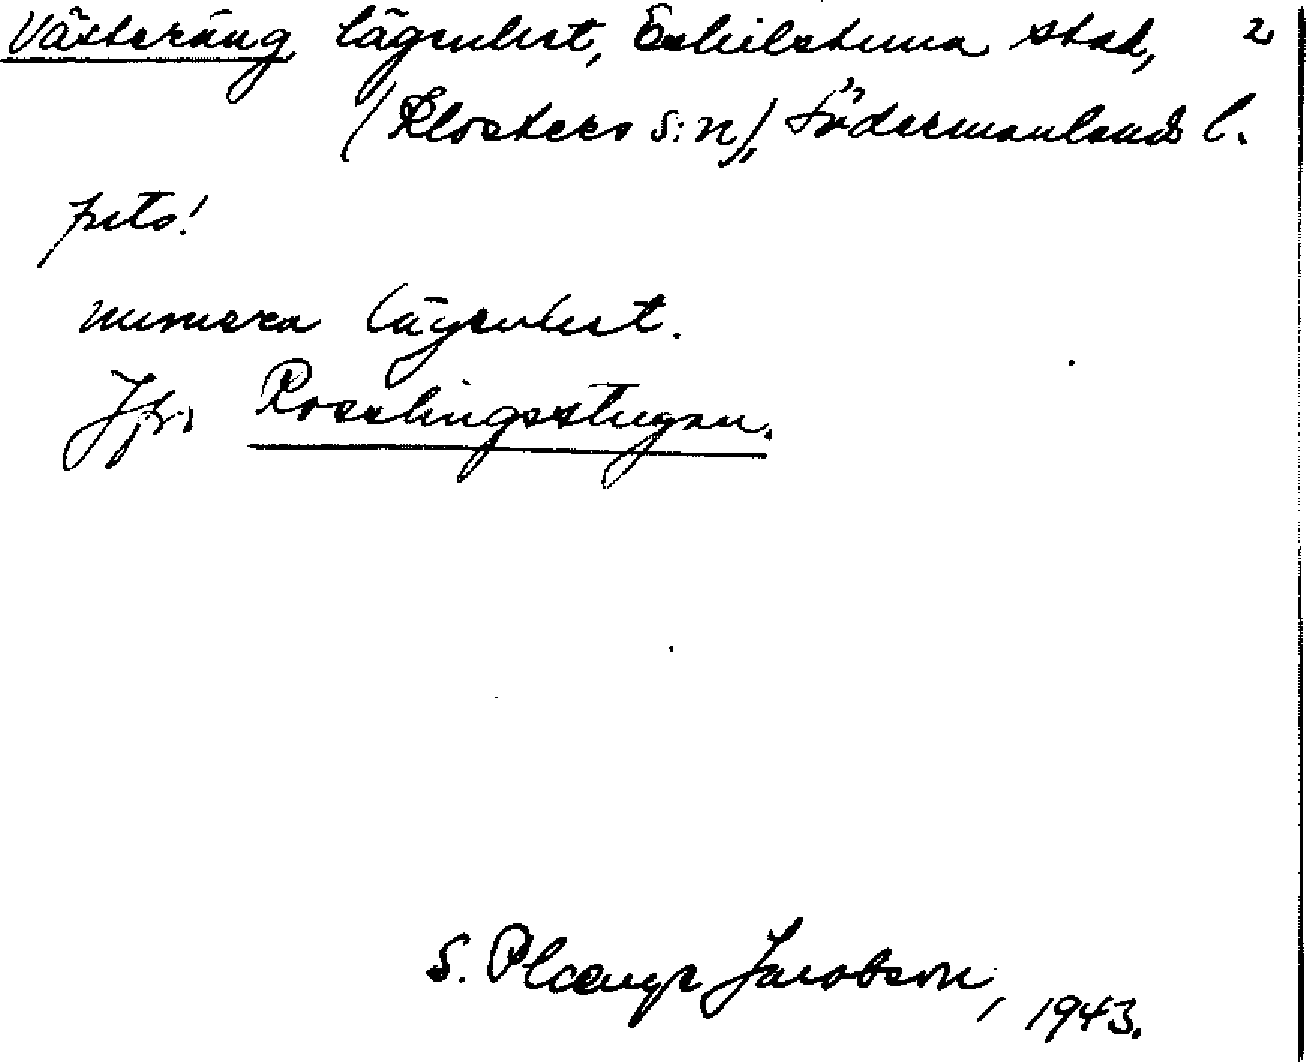 Västeräng, lägenhet, Eskilstuna stad, 2
(Klosters s:n), Södermanlands l.
prts!
numera lägenhet.
Jfr. Rosslingsstugan.
S. Plaenge Jacobson, 1943.